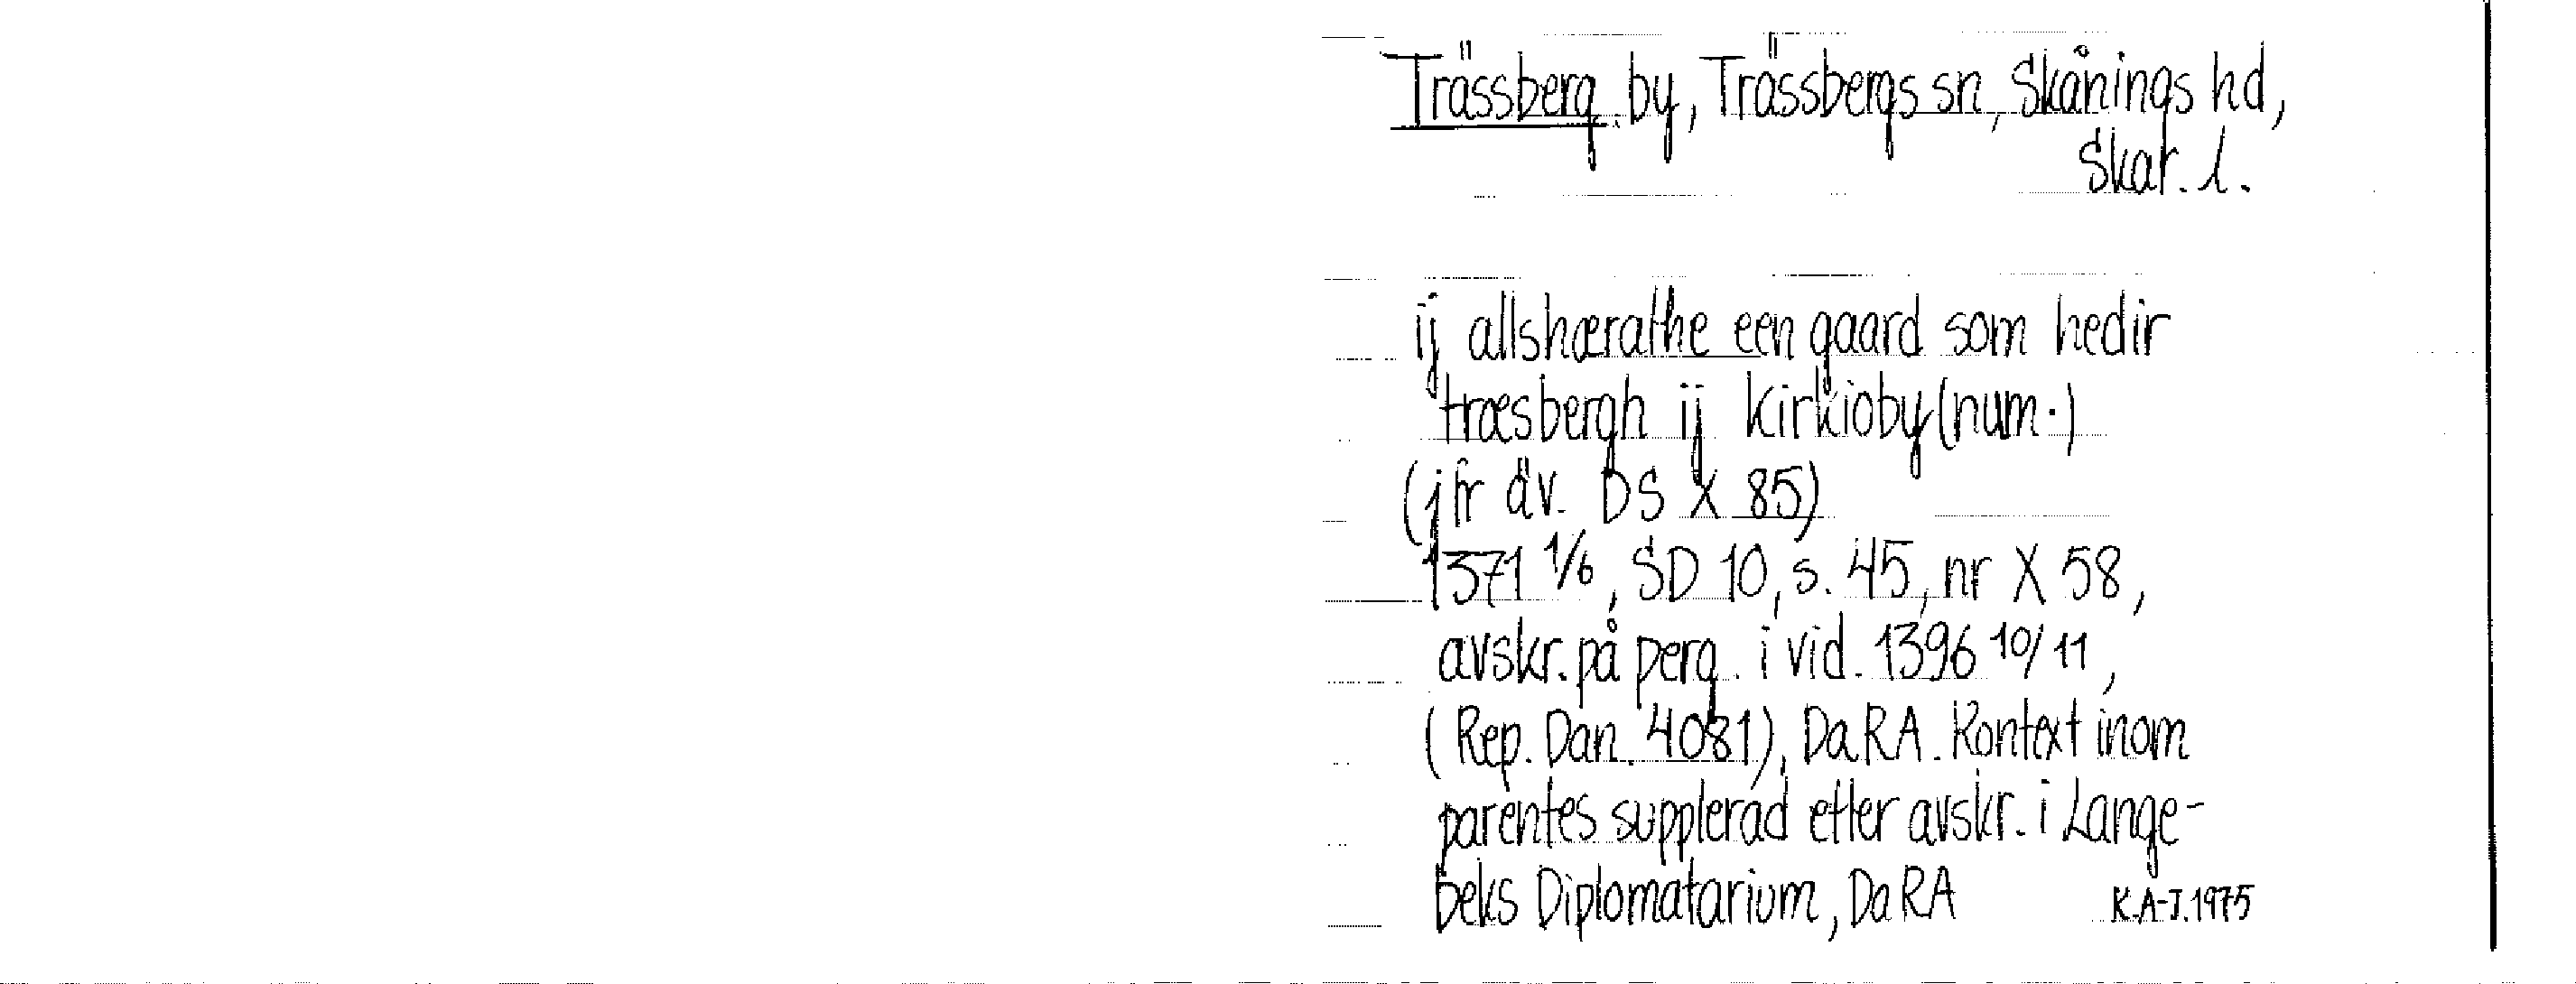 Trässberg, by, Trässbergs sn, Skånings hd,
Skar. l.
ij allshærathe een gaard som hedir
træsbergh ij kirkioby (num.)
(jfr äv. DS X 85)
1371 1/6, SD 10, s. 45, nr X 58,
avskr. på perg. i vid. 1396 10/11,
(Rep. Dan. 4081), DaRA. Kontext inom
parentes supplerad efter avskr. i Lange-
beks Diplomatarium, DaRA K.A-J. 1975